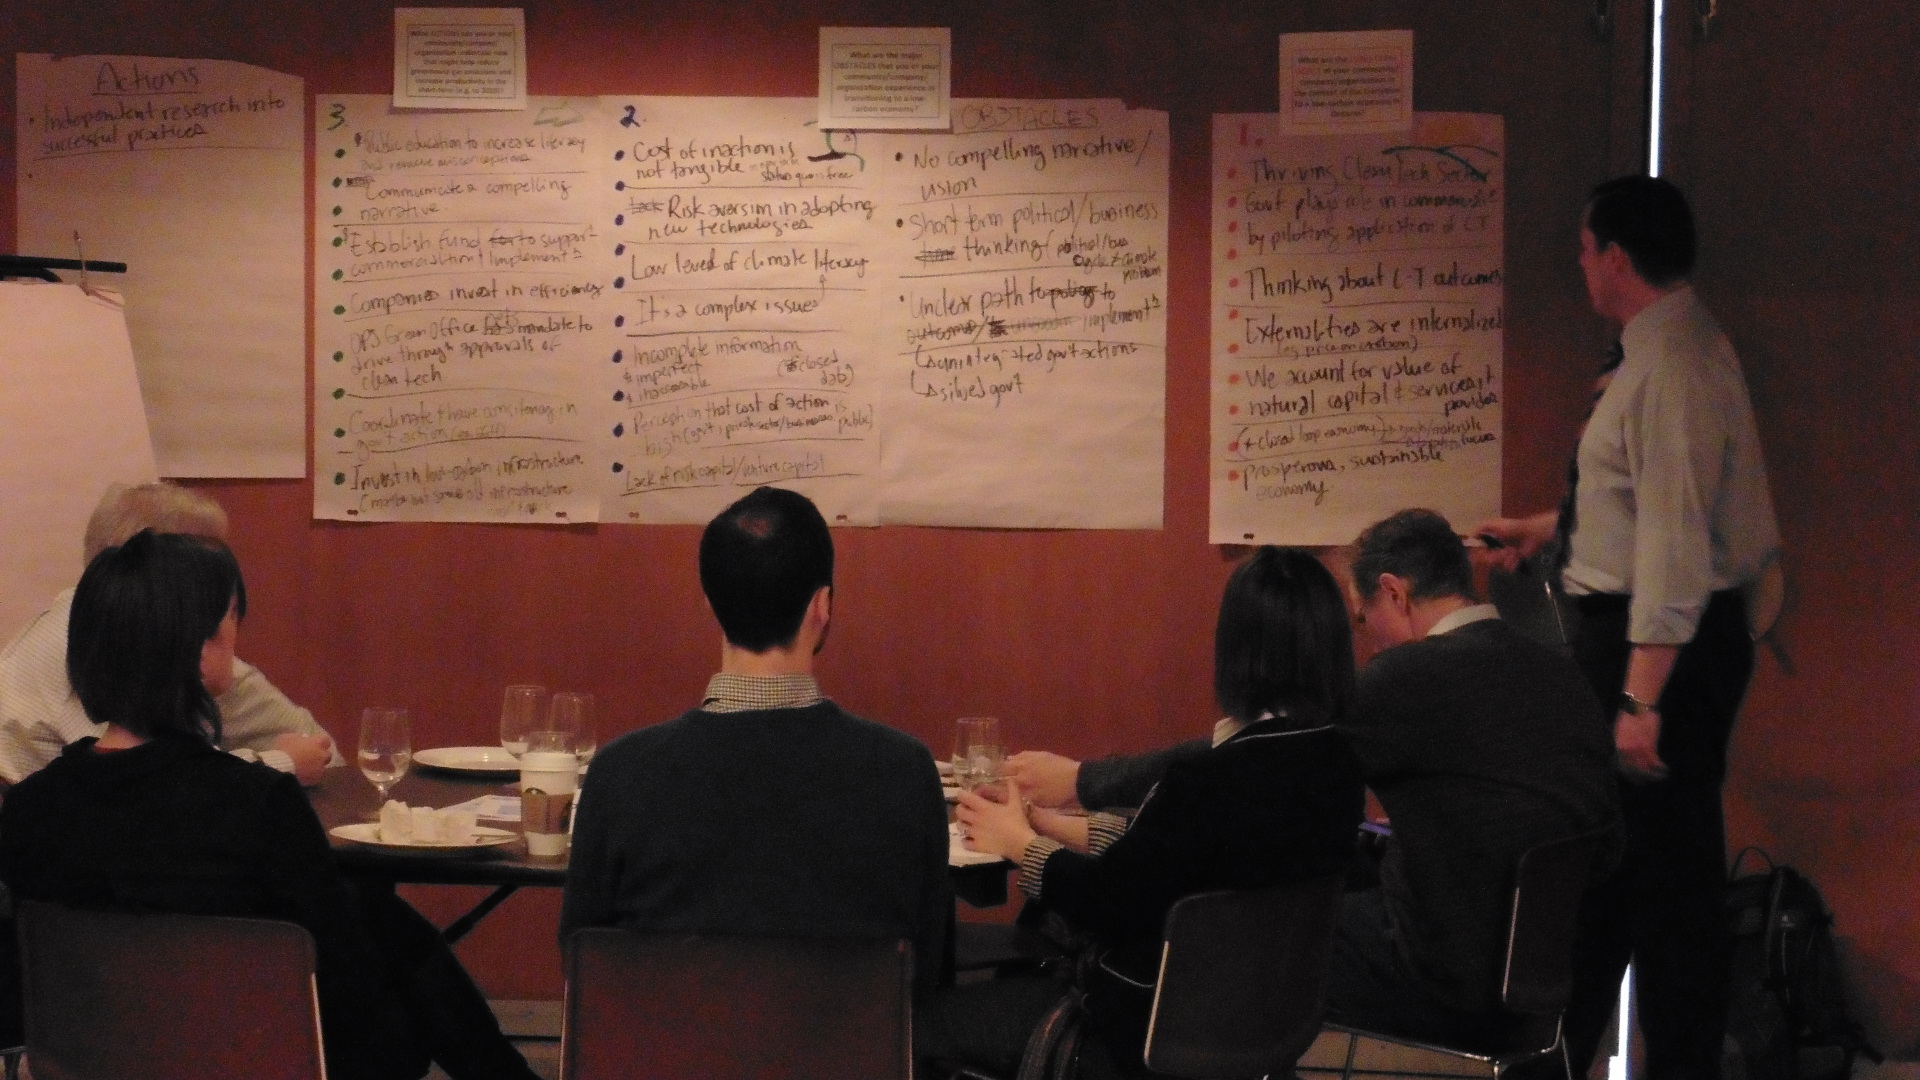 Actions
• Independent research into
successful practices
What ACTIONS can you or your
community/company/
organization undertake now
that might help reduce
greenhouse gas emissions and
increase productivity in the
short-term
3.
Public education to increase literacy
and remove misconceptions
Communicate a compelling
narrative
Establish fund for to support
commercialition / implement
Companies invest in efficiency
OPS Green Office mandate to
drive through approvals of
clean tech
Coordinate & have consistency in
gov't action
Invest in low-carbon infrastructure
infrastructure
What are the major
OBSTACLES that you or your
community/company/
organization experience in
transitioning to a low-
carbon economy?
2.
Cost of inaction is
not tangible
status quo is free
Lack Risk aversion in adopting
new technologies
Low level of climate literacy
It is a complex issue
Incomplete information
imperfect
inaccessible
(closed
data)
Perception that cost of action is
high (gov't, private sector/businesses, public)
Lack of risk capital/venture capital
OBSTACLES
• No compelling narrative/
vision
• Short term political/business
thinking (political/bus
cycle ≠ climate
problem
• Unclear path to policy to
outcomes/ implement
↳ unintegrated gov't actions
↳ siloed gov't
What are the
of your community/
company/organization in
the context of the transition
to a low-carbon economy in
Ontario?
1.
Thriving CleanTech Sector
Govt plays role in
by piloting application of CT
Thinking about C-T outcomes
Externalities are internalized
(eg price on carbon)
We account for value of
natural capital & services it
provides
(* closed loop economy)
prosperous, sustainable
economy